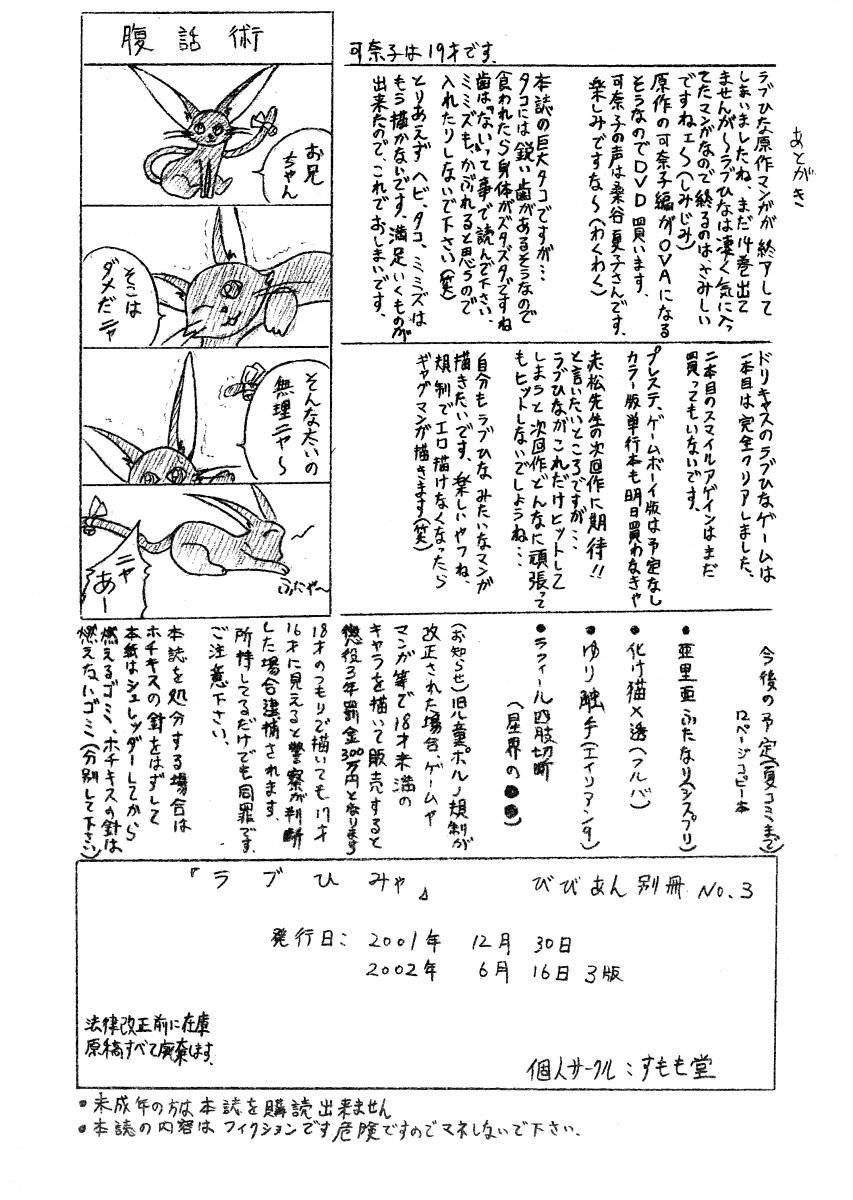 腹話術
お兄
ちゃん
そこは
ダメだニャ
そんな太いの
無理ニャ～
ふにゃ～
ニャ
あー
あとがき
ラブひな原作マンガが終アして
しまいましたね、まだ14巻出て
ませんが～ラブひなは凄く気に入っ
てたマンガなので終るのは、さみしい
ですねェ～(しみじみ)
原作の可奈子編がOVAになる
そうなのでDVD買います、
可奈子の声は桑谷夏子さんです、
楽しみですな～(わくわく)
本誌の巨大タコですが…
タコには鋭い歯があるそうなので
食われたら身体がズタズタですね
歯は「ない」って事で読んで下さい、
ミミズも、かぶれると思うので
入れたりしないで下さい(笑)
とりあえずヘビ、タコ、ミミズは
もう描かないです、満足いくものが
出来たので、これでおしまいです、
可奈子は19才です、
ドリキャスのラブひなゲームは
一本目は完全クリアしました、
二本目のスマイルアゲインはまだ
買ってもいないです、
プレステ、ゲームボーイ版は予定なし
カラー版単行本も明日買わなきゃ
赤松先生の次回作に期待!!
と言いたいところですが…
ラブひながこれだけヒットして
しまうと次回作どんなに頑張って
もヒットしないでしょうね…
自分もラブひなみたいなマンガ
描きたいです、楽しいやつね、
規制でエロ描けなくなったら
ギャグマンガ描きます(笑)
今後の予定(夏コミまで)
12ページコピー本
●亜里亜ふたなり(シスプリ)
●化け猫×透(フルバ)
●ゆり触手(エイリアン9)
●ラフィール四肢切断
(星界の●●)
(お知らせ)児童ポルノ規制が
改正された場合、ゲームや
マンガ等で18才未満の
キャラを描いて販売すると
懲役3年罰金300万円となります
18才のつもりで描いても17才
16才に見えると警察が判断
した場合逮捕されます、
所持してるだけでも同罪です、
ご注意下さい、
本誌を処分する場合は
ホチキスの針をはずして
本紙はシュレッダーしてから
燃えるゴミ、ホチキスの針は
燃えないゴミ(分別して下さい)
『ラブひみゃ』 びびあん別冊 No.3
発行日: 2001年 12月 30日
2002年 6月 16日 3版
法律改正前に在庫
原稿すべて廃棄します、
個人サークル:すもも堂
●未成年の方は本誌を購読出来ません
●本誌の内容はフィクションです危険ですのでマネしないで下さい、